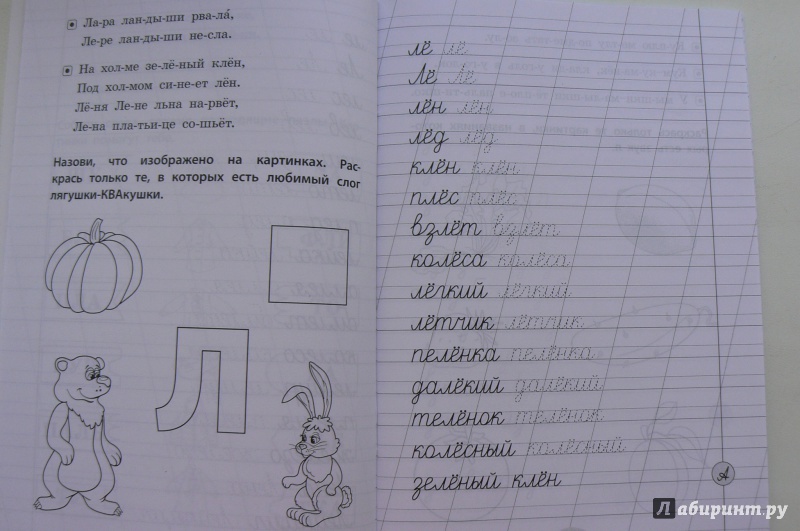 Ла-ра лан-ды-ши рва-ла́,
Ле-ре лан-ды-ши не-сла.
На хол-ме зе-лё-ный клён,
Под хол-мом си-не-ет лён.
Лё-ня Ле-не льна на-рвёт,
Ле-на пла-тьи-це со-шьёт.
Назови, что изображено на картинках. Рас-
крась только те, в которых есть любимый слог
лягушки-КВАкушки.
Л
лё лё
Лё Лё
лён лён
лёд лёд
клён клён
плёс плёс
взлёт взлёт
колёса колёса
лёгкий лёгкий
лётчик лётчик
пелёнка пелёнка
далёкий далёкий
телёнок телёнок
колёсный колёсный
зелёный клён
Лабиринт.ру